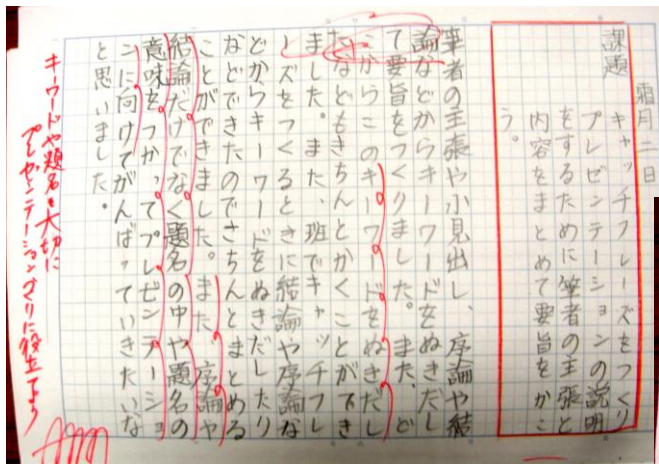 霜月二日
課題 キャッチフレーズをつくり
プレゼンテーションの説明
をするために筆者の主張と
内容をまとめて要旨をかこ
う。
筆者の主張や小見出し、序論や結
論などからキーワードをぬきだし
て要旨をつくりました。また、ど
こからこのキーワードをぬきだし
たなどもきちんとかくことができ
ました。また、班でキャッチフレ
ーズをつくるときに結論や序論な
どからキーワードをぬきだしたり
などできたのでさちんとまとめる
ことができました。また、序論や
結論だけでなく題名の中や題名の
意味をつかってプレゼンテーショ
ンに向けてがんばっていきたいな
と思いました。
キーワードや題名も大切に
プレゼンテーションづくりに役立てよう